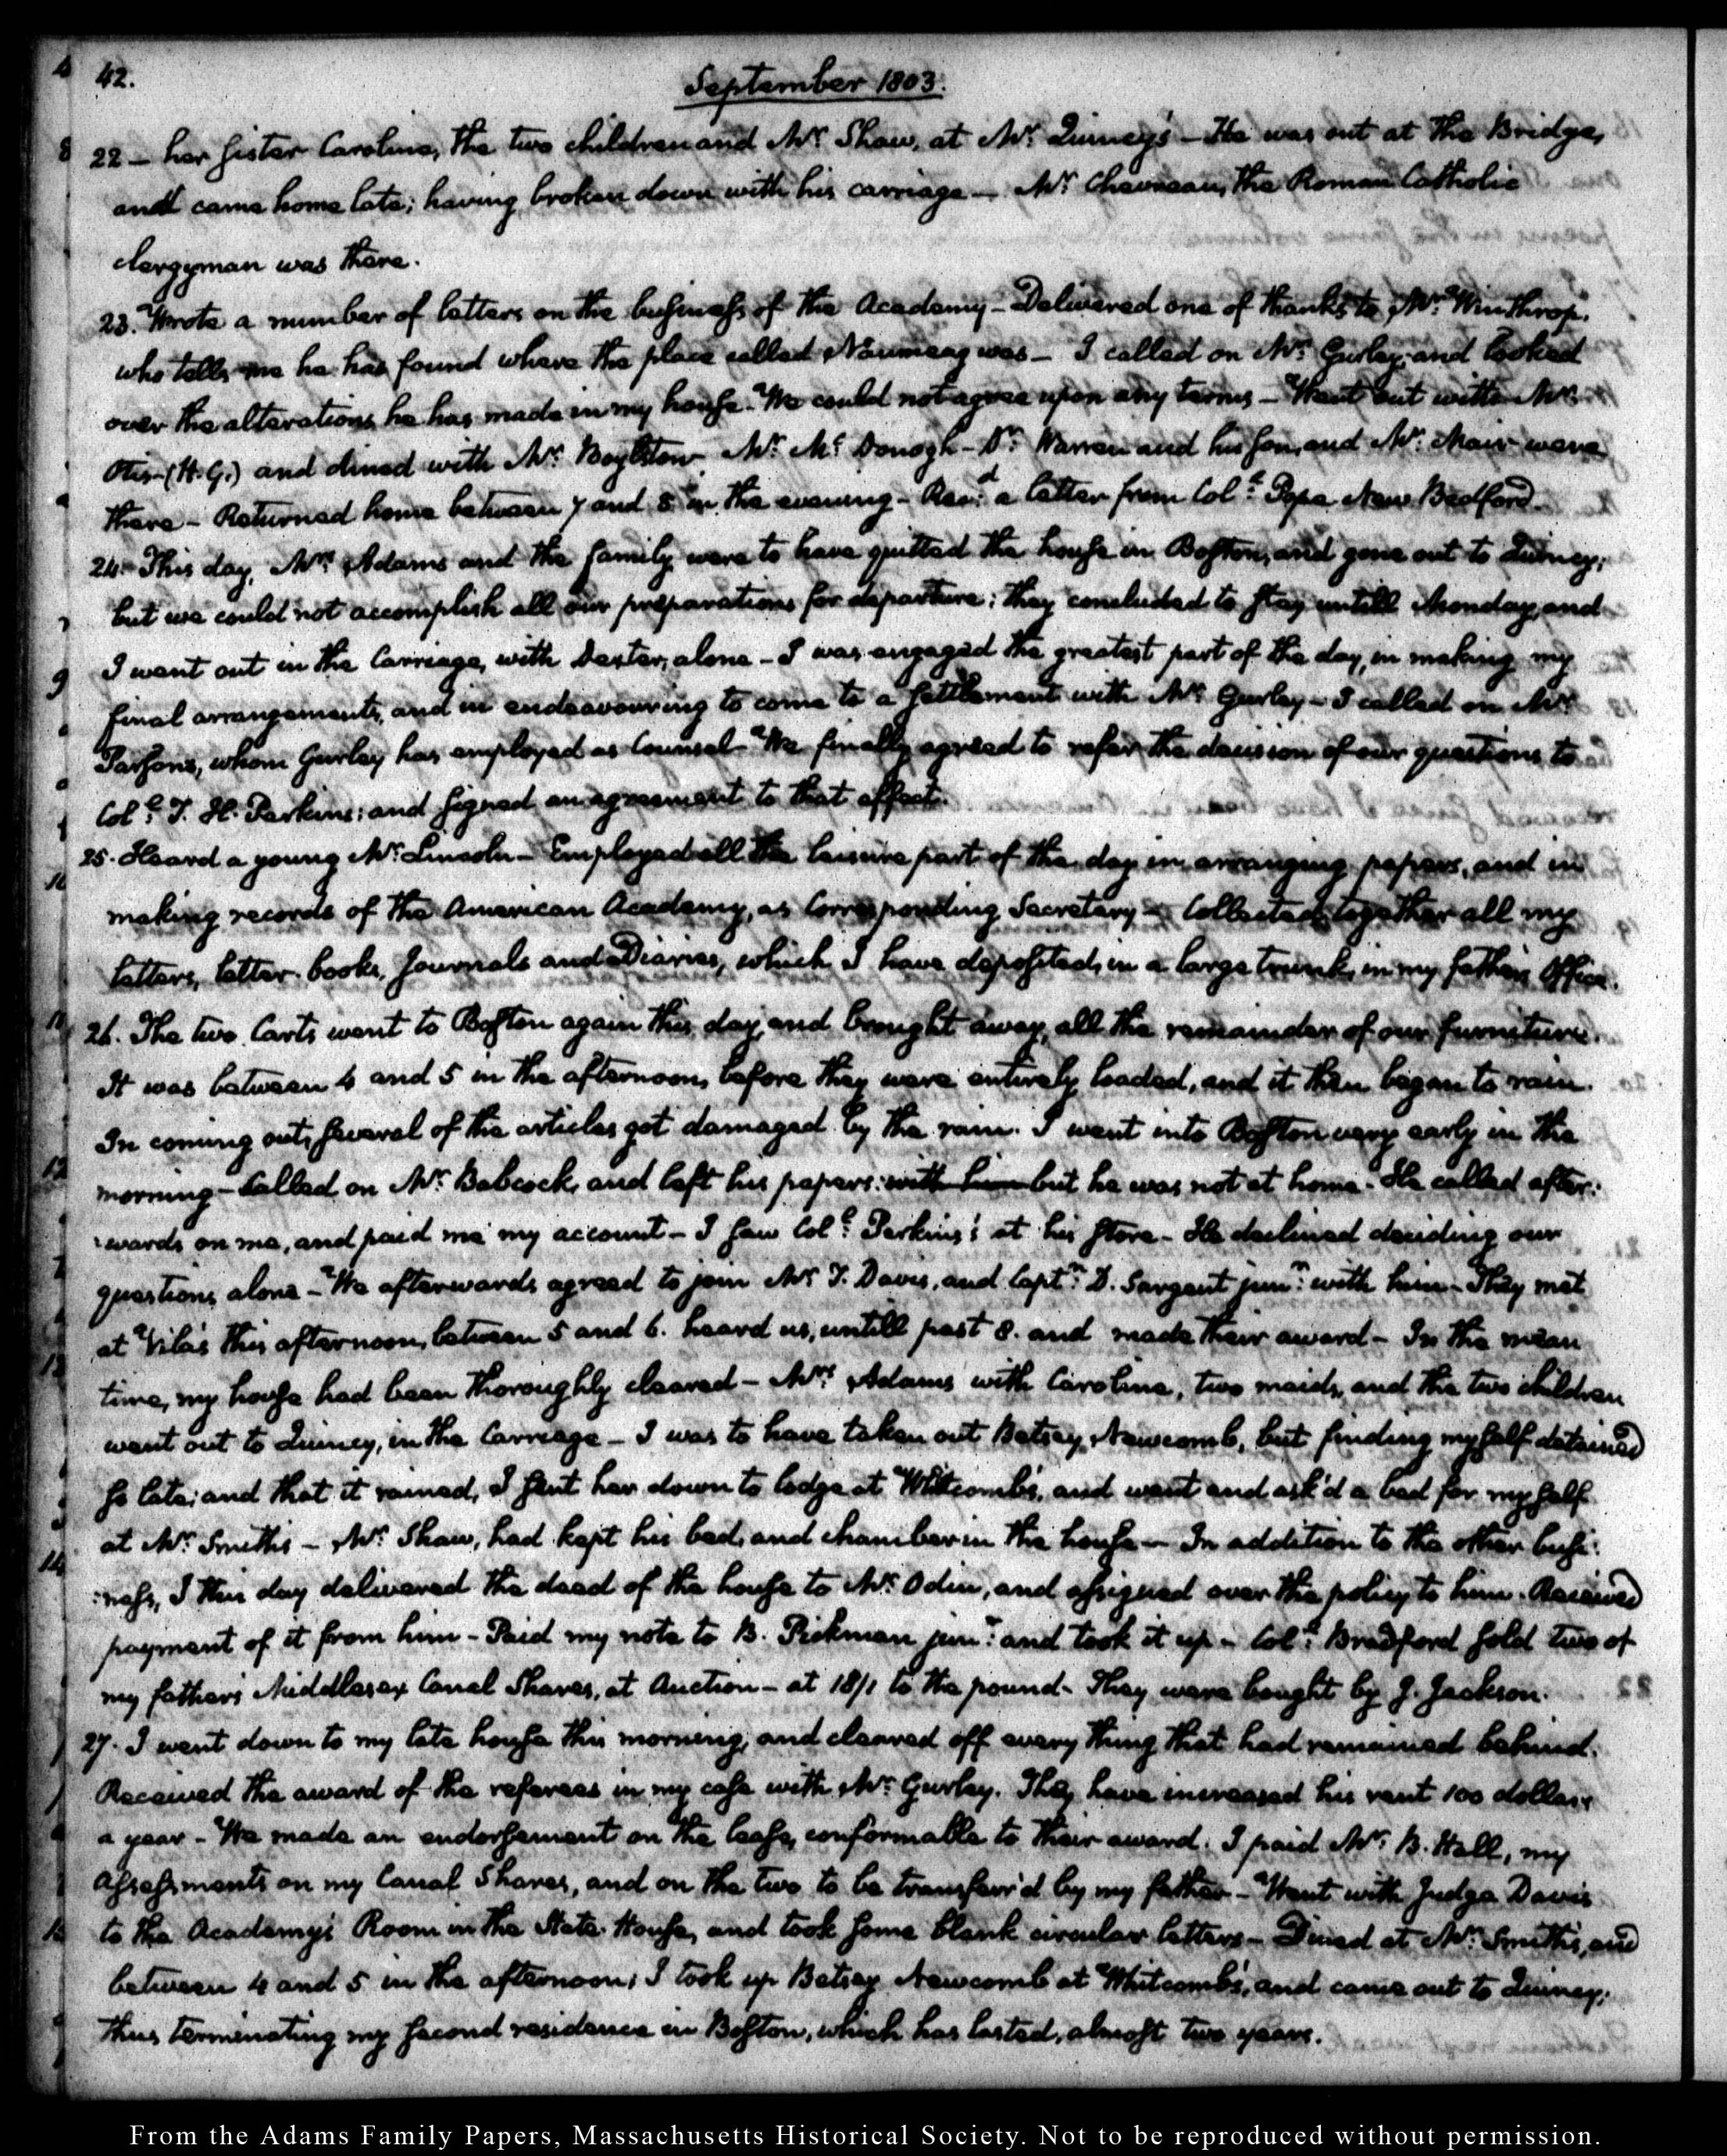 42.
September 1803.
22 – her sister Caroline, the two children and Mr. Shaw, at Mr. Quincy's – He was out at the Bridge,
and came home late; having broken down with his carriage – Mr. Cheverus, the Roman Catholic
clergyman was there.
23. Wrote a number of letters on the business of the Academy – Delivered one of thanks to Mr. Winthrop,
who tells me he has found where the place called Naumeag was – I called on Mr. Gurley, and looked
over the alterations he has made in my house. We could not agree upon any terms – Went out with Mr.
Otis (H. G.) and dined with Mr. Boylston. Mr. Mc. Donogh – Dr. Warren and his son, and Mr. Mair were
there – Returned home between 7 and 8 in the evening – Recd. a letter from Coll. Pope New Bedford.
24. This day, Mrs. Adams and the family were to have quitted the house in Boston, and gone out to Quincy;
but we could not accomplish all our preparations for departure; they concluded to stay untill Monday, and
I went out in the Carriage, with Dexter, alone – I was engaged the greatest part of the day, in making my
final arrangements, and in endeavouring to come to a settlement with Mr. Gurley – I called on Mr.
Parsons, whom Gurley has employed as Counsel – We finally agreed to refer the decision of our questions to
Coll. T. H. Perkins; and signed an agreement to that effect.
25. Heard a young Mr. Lincoln – Employed all the leisure part of the day in arranging papers, and in
making records of the American Academy, as Corresponding Secretary – Collected together all my
letters, letter-books, Journals and Diaries, which I have deposited, in a large trunk, in my father's Office.
26. The two Carts went to Boston again this day, and brought away, all the remainder of our furniture.
It was between 4 and 5 in the afternoon, before they were entirely loaded, and it then began to rain.
In coming out, several of the articles got damaged by the rain. I went into Boston very early in the
morning – Called on Mr. Babcock, and left his papers: with him but he was not at home. He called after:
:wards on me, and paid me my account – I saw Coll. Perkins's at his store – He declined deciding our
questions alone – We afterwards agreed to join Mr. I. Davis, and Captn. D. Sargent junr. with him – They met
at Vila's this afternoon, between 5 and 6. heard us, untill past 8. and made their award – In the mean
time, my house had been thoroughly cleared – Mrs. Adams with Caroline, two maids, and the two children
went out to Quincy, in the Carriage – I was to have taken out Betsey Newcomb, but finding myself detained
so late; and that it rained, I sent her down to lodge at Whitcomb's, and went and ask'd a bed for myself
at Mr. Smith's – Mr. Shaw, had kept his bed, and chamber in the house – In addition to the other busi:
:ness, I this day delivered the deed of the house to Mr. Odin, and assigned over the policy to him. Received
payment of it from him – Paid my note to B. Pickman junr. and took it up – Coll. Bradford sold two of
my father's Middlesex Canal Shares, at Auction – at 18/1 to the pound – They were bought by J. Jackson.
27. I went down to my late house this morning, and cleared off every thing that had remained behind.
Received the award of the referees in my case with Mr. Gurley. They have increased his rent 100 dollars
a year – We made an endorsement on the lease, conformable to their award. I paid Mr. B. Hall, my
assessments on my Canal Shares, and on the two to be transferr'd by my father – Went with Judge Davis
to the Academy's Room in the State-House, and took some blank circular letters – Dined at Mr. Smith's, and
between 4 and 5 in the afternoon, I took up Betsey Newcomb at Whitcomb's, and came out to Quincy;
thus terminating my second residence in Boston, which has lasted, almost two years.
From the Adams Family Papers, Massachusetts Historical Society. Not to be reproduced without permission.